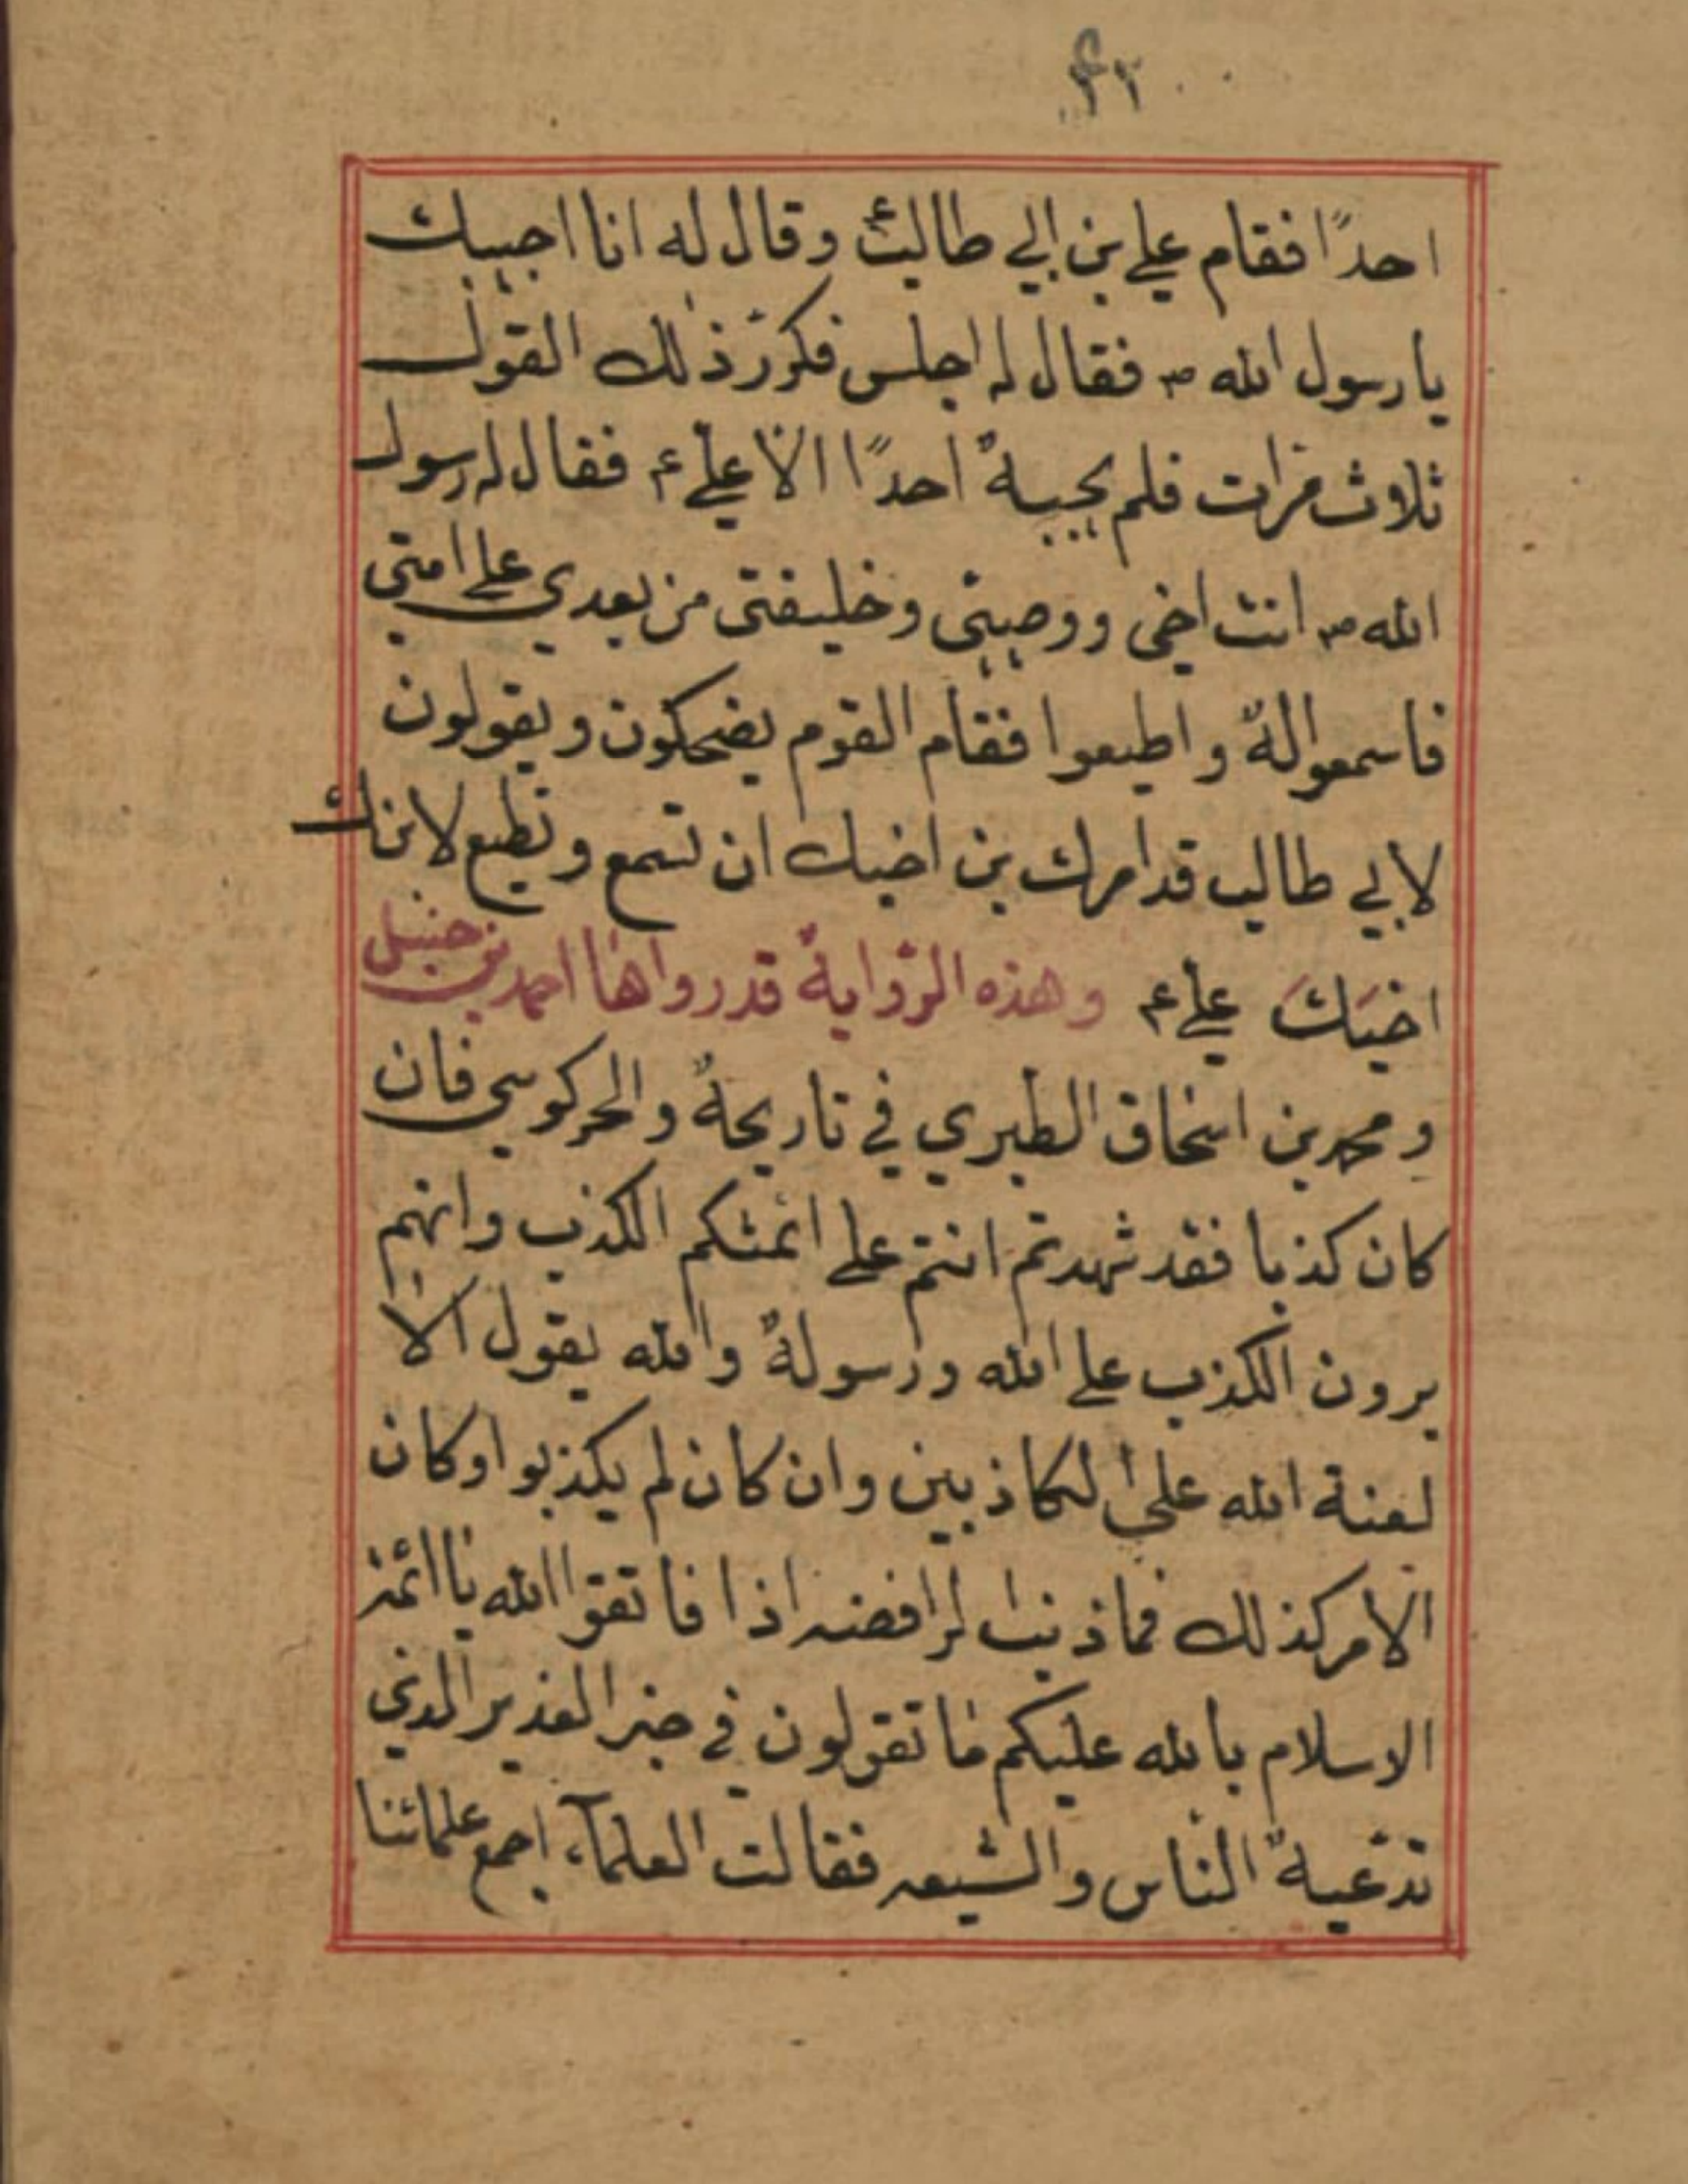 احدًا فقام علي بن ابي طالب ع وقال له انا اجيبك
يا رسول الله ص فقال له اجلس فكرّر ذلك القول
ثلاث مرات فلم يجيبهُ احدًا الا علي ع فقال له رسول
الله ص انت اخي ووصيي وخليفتي من بعدي علي امتي
فاسمعوا لهُ واطيعوا فقام القوم يضحكون ويقولون
لابي طالب قد امرك بن اخيك ان تسمع وتطيع لابنك
اخيك علي ع وهذه الرّوايةُ قد رواها احمد بن حنبل
ومحمد بن اسحاق الطبري في تاريخهُ والحركوسي فان
كان كذبا فقد شهدتم انتم علي ائمتكم الكذب وانهم
يرون الكذب علي الله ورسولهُ والله يقول الا
لعنة الله علي الكاذبين وان كان لم يكذبوا وكان
الامر كذلك فما ذنب الرافضه اذا فاتقوا الله يا ائمة
الاسلام بالله عليكم ما تقولون في خبر الغدير الذي
تدّعيهُ الناس والشيعه فقالت العلمآء اجمع علمائنا